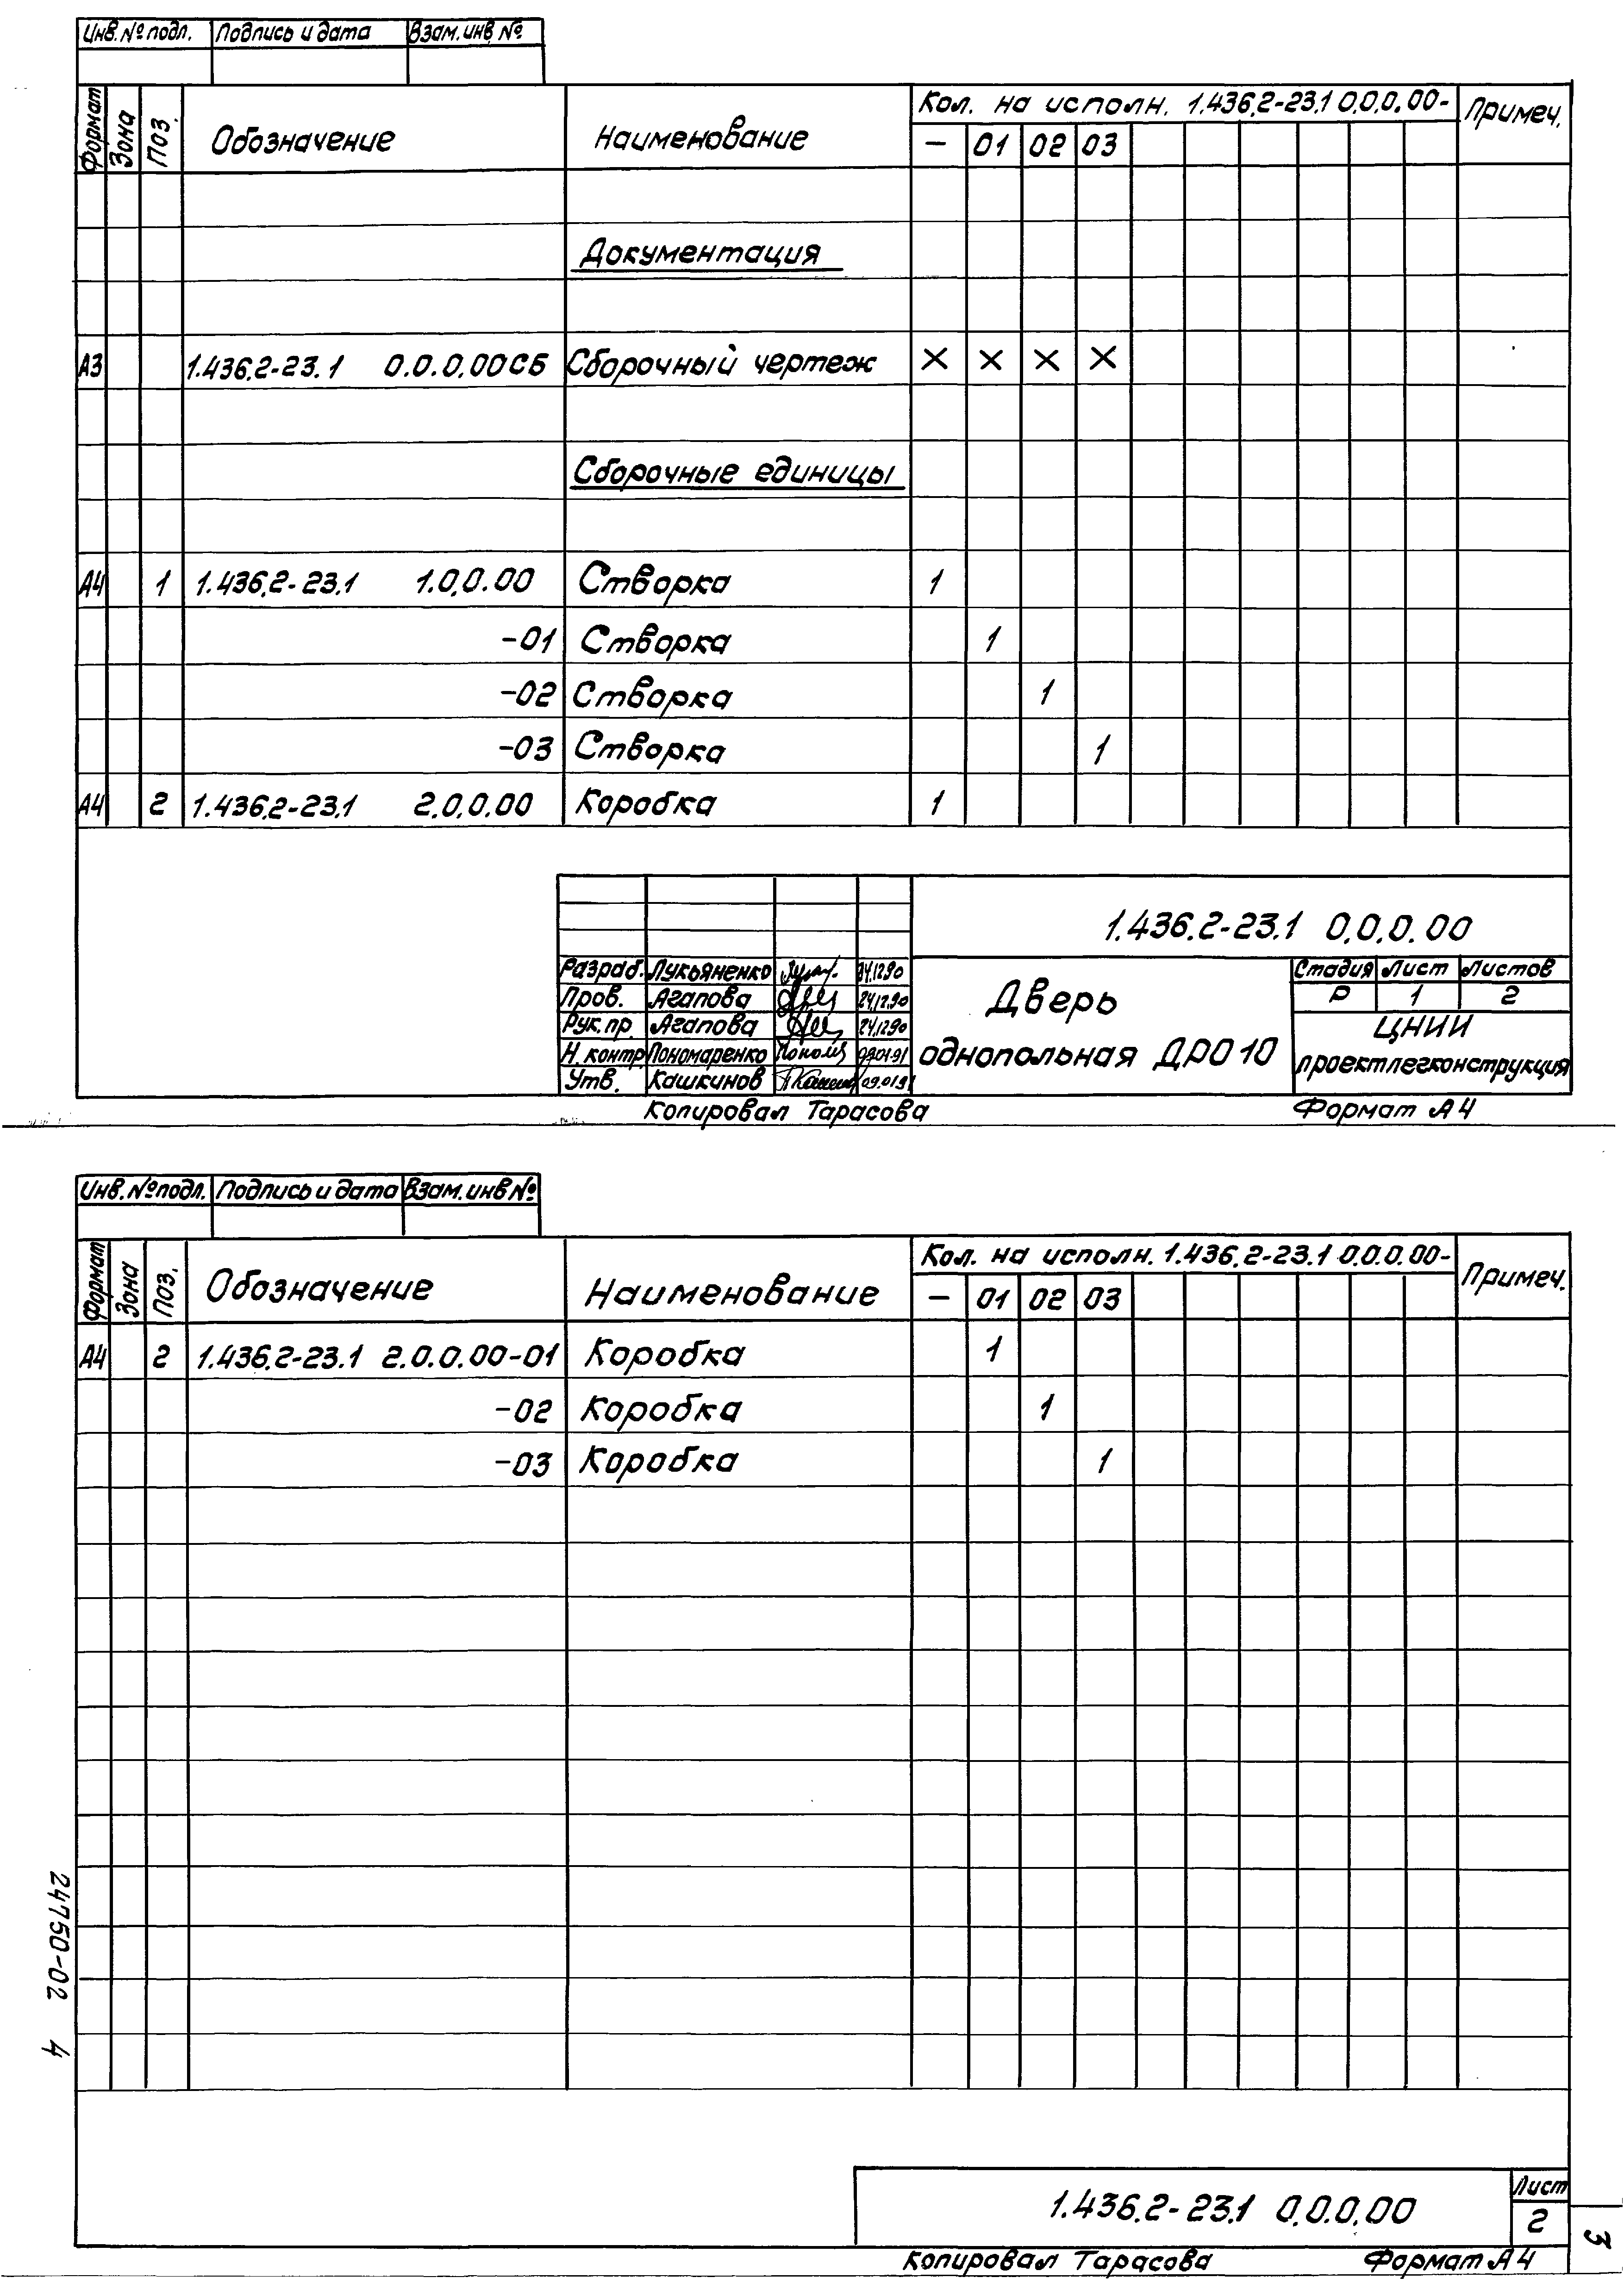 Инв. № подл. Подпись и дата Взам. инв. №
Формат Зона Поз. Обозначение Наименование Кол. на исполн. 1.436.2-23.1 0.0.0.00- Примеч.
— 01 02 03
Документация
А3 1.436.2-23.1 0.0.0.00СБ Сборочный чертеж × × × ×
Сборочные единицы
А4 1 1.436.2-23.1 1.0.0.00 Створка 1
-01 Створка 1
-02 Створка 1
-03 Створка 1
А4 2 1.436.2-23.1 2.0.0.00 Коробка 1
1.436.2-23.1 0.0.0.00
Разраб. Лукьяненко 24.12.90
Пров. Агапова 24.12.90
Рук. пр. Агапова 24.12.90
Н. контр. Пономаренко 09.01.91
Утв. Кашкинов 09.01.91
Дверь
однопольная ДРО 10
Стадия Лист Листов
Р 1 2
ЦНИИ
проектлегконструкция
Копировал Тарасова Формат А4
Инв. № подл. Подпись и дата Взам. инв №
Формат Зона Поз. Обозначение Наименование Кол. на исполн. 1.436.2-23.1 0.0.0.00- Примеч.
— 01 02 03
А4 2 1.436.2-23.1 2.0.0.00-01 Коробка 1
-02 Коробка 1
-03 Коробка 1
24750-02 4
1.436.2-23.1 0.0.0.00
Лист
2
3
Копировал Тарасова Формат А4